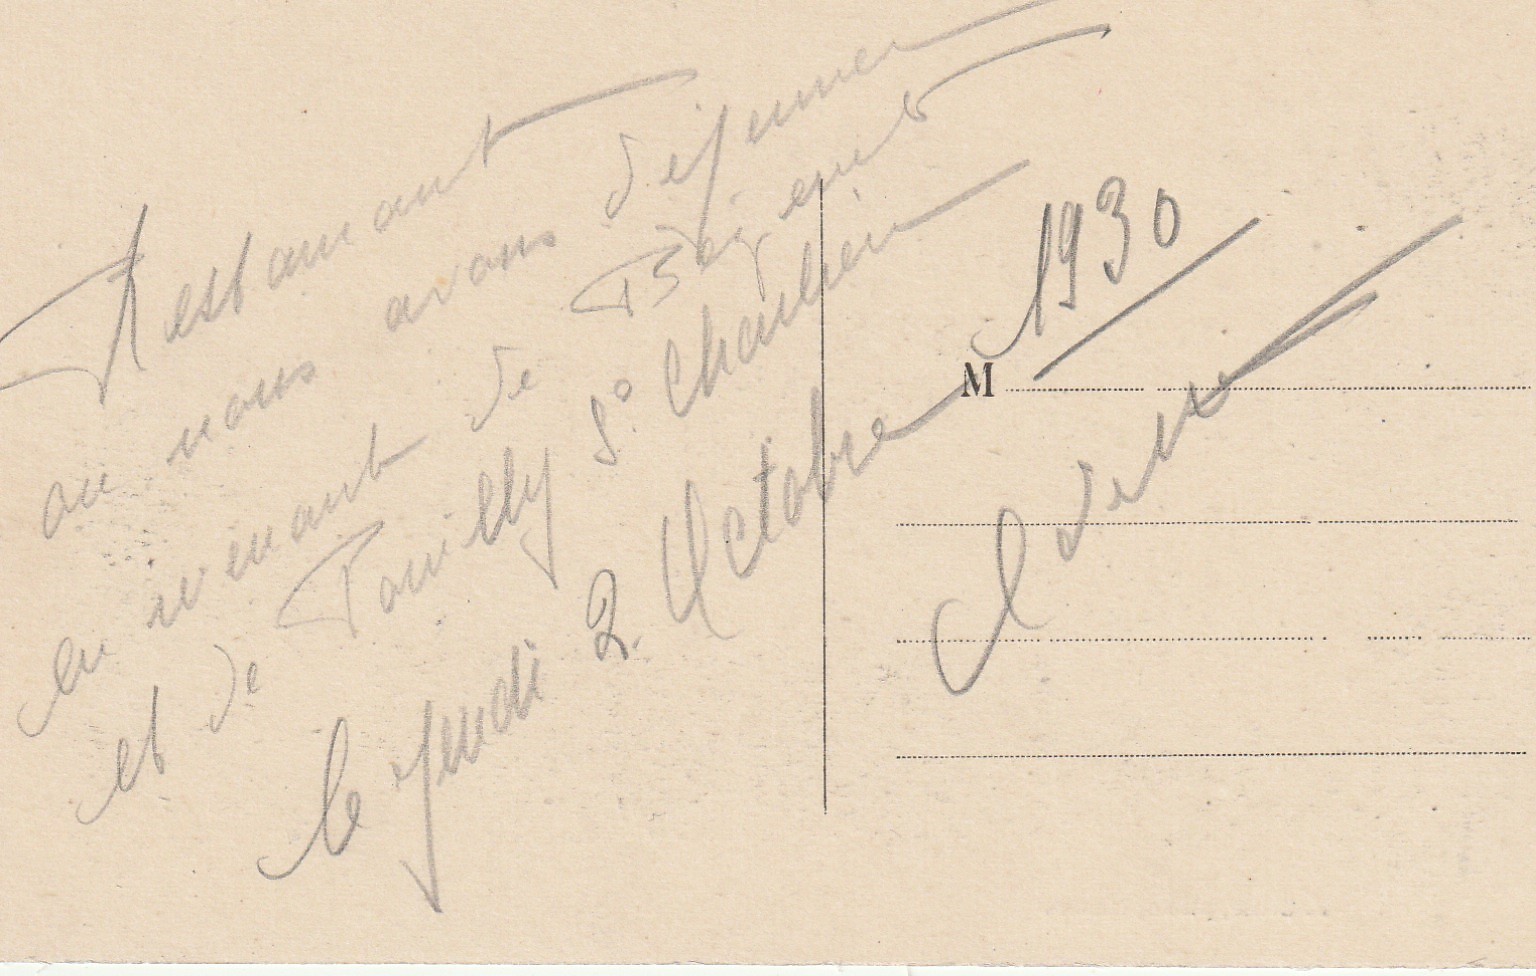 Restaurant
ou nous avons dejeuner
en revenant de
et de Pouilly s/ Charlieu
le Jeudi 2 Octobre 1930
M